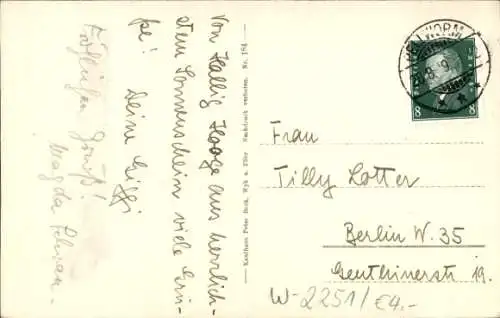 Von Hallig Hooge aus herrlich-
stem Sonnenschein viele Grü-
ße!
Deine
Herzlichen Gruß!
Magda
Kaufhaus Peter Beck, Wyk a. Föhr Nachdruck verboten. Nr. 184
WORM
8 8
Frau
Tilly Lotter
Berlin W. 35
Genthinerstr 19.
W-2251/€4.-